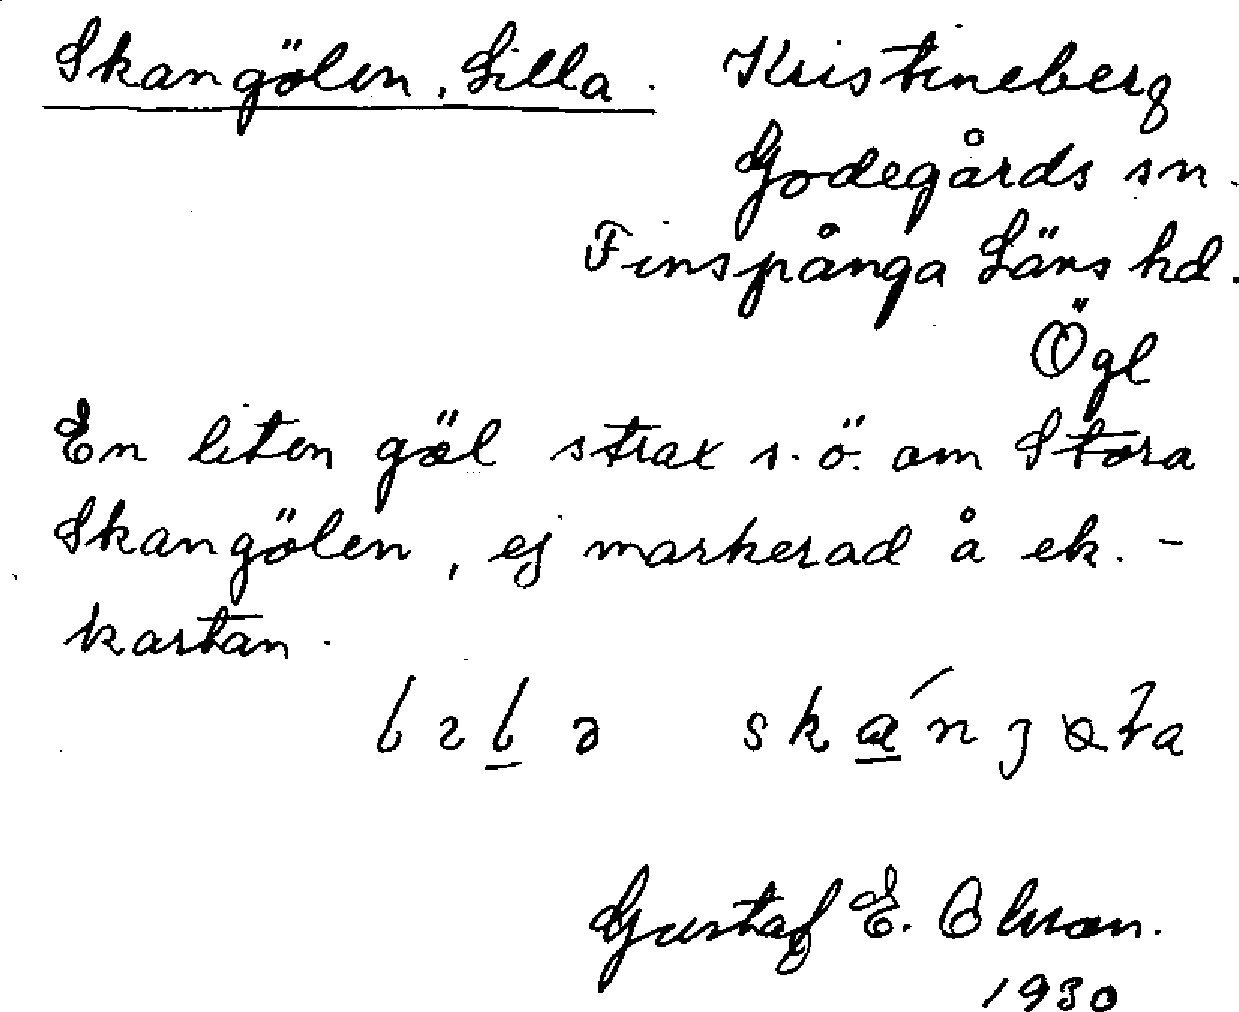 Skangölen, Lilla. Kristineberg
Godegårds sn.
Finspånga Läns hd.
Ögl
En liten göl strax s.ö. om Stora
Skangölen, ej markerad å ek.-
kartan.
Gustaf E. Olsson.
1930